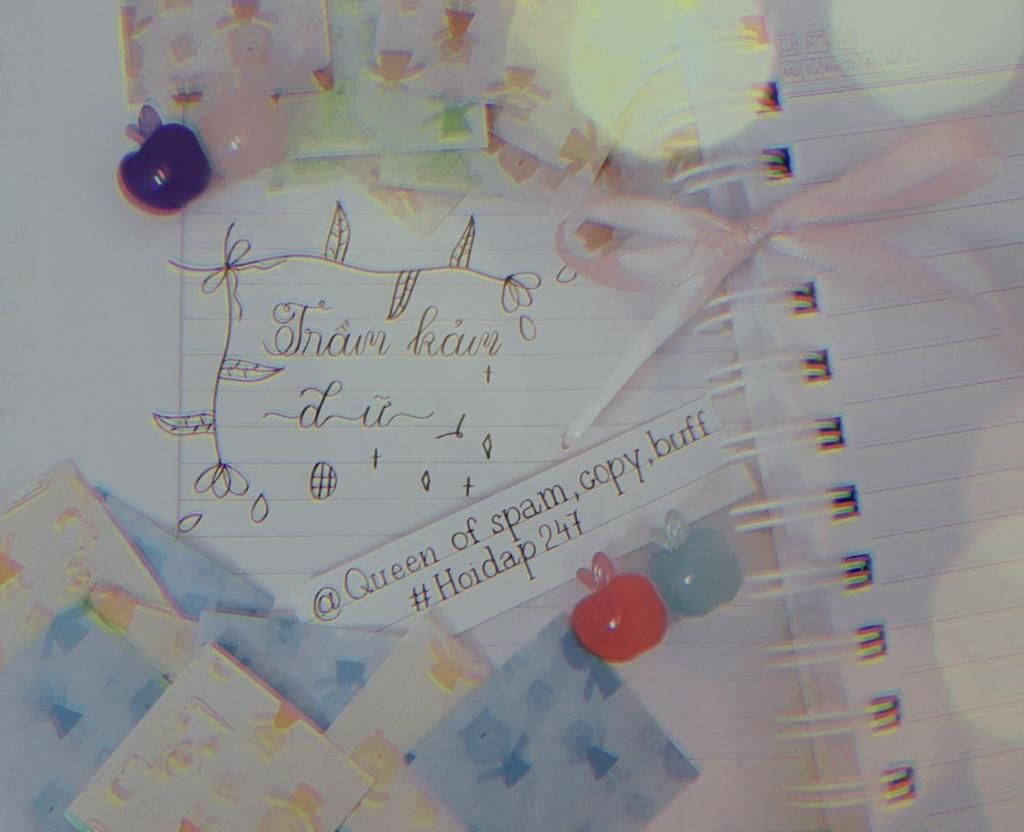 Mo Tu We Th Fr Sa Su
Trầm kảm
~d~ữ~
@Queen of spam,copy,buff
#Hoidap247